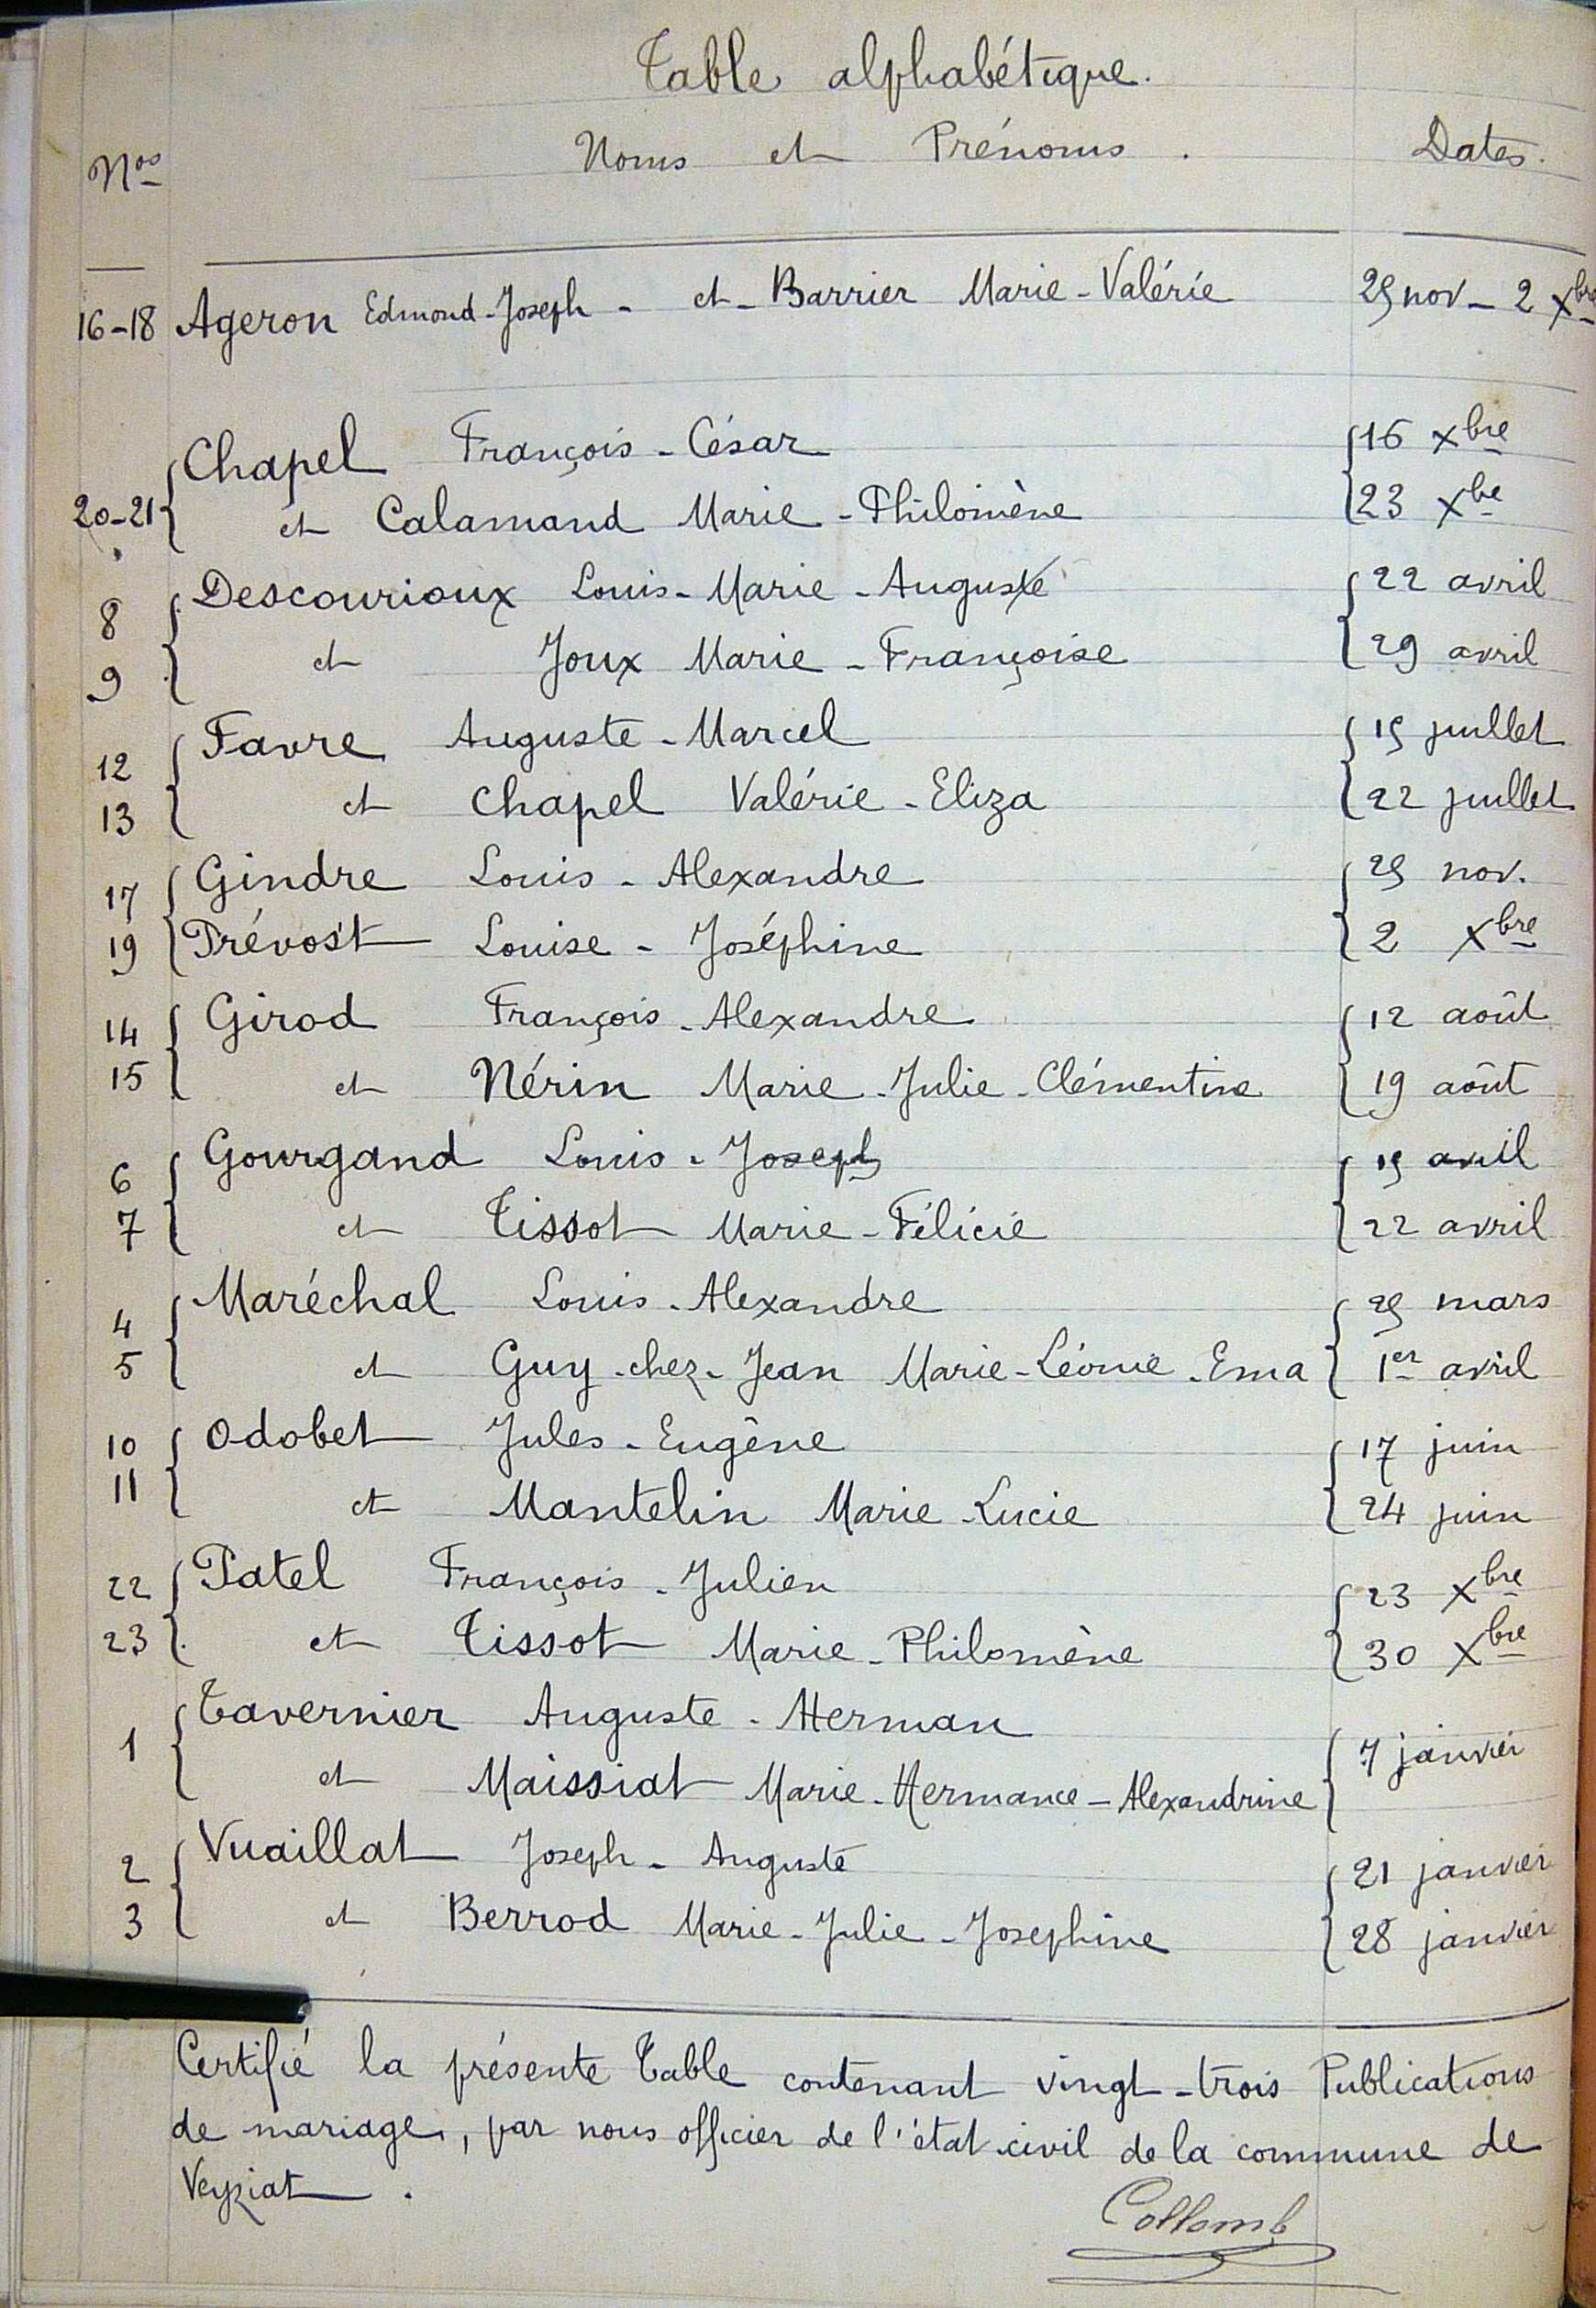 Table alphabétique.
Nos Noms et Prénoms. Dates.
16-18 Ageron Edmond-Joseph - et - Barrier Marie-Valérie 25 nov - 2 Xbre
Chapel François-César 16 Xbre
20-21 et Calamand Marie-Philomène 23 Xbre
8 Descourioux Louis-Marie-Auguste 22 avril
9 et Joux Marie-Françoise 29 avril
12 Favre Auguste-Marcel 15 juillet
13 et Chapel Valérie-Eliza 22 juillet
17 Gindre Louis-Alexandre 25 nov.
19 Prévost Louise-Joséphine 2 Xbre
14 Girod François-Alexandre 12 août
15 et Nérin Marie-Julie-Clémentine 19 août
6 Gourgand Louis-Joseph 15 avril
7 et Tissot Marie-Félicie 22 avril
4 Maréchal Louis-Alexandre 25 mars
5 et Guy-chez-Jean Marie-Léonie-Ema 1er avril
10 Odobet Jules-Eugène 17 juin
11 et Mantelin Marie-Lucie 24 juin
22 Patel François-Julien 23 Xbre
23 et Tissot Marie-Philomène 30 Xbre
Tavernier Auguste-Herman
1 et Maissiat Marie-Hermance-Alexandrine 7 janvier
2 Vuaillat Joseph-Auguste 21 janvier
3 et Berrod Marie-Julie-Josephine 28 janvier
Certifié la présente Table contenant vingt-trois Publications
de mariage, par nous officier de l'état-civil de la commune de
Veyziat.
Collomb